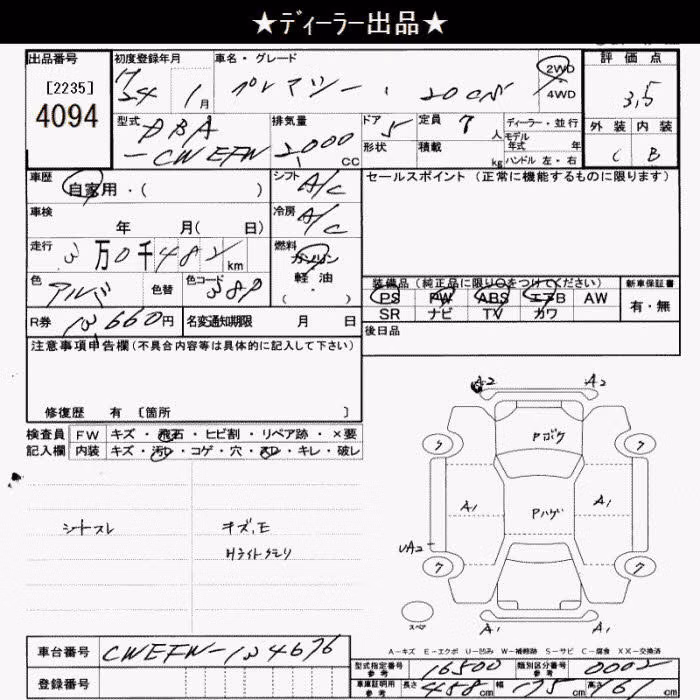 ★ディーラー出品★
出品番号
[2235]
4094
初度登録年月
24 1月
車名・グレード
プレマシー 20CS
2WD
4WD
評価点
3,5
外装 内装
C B
型式
DBA
-CWEFW
排気量
2000
CC
ドア
5
定員
7
人
形状
積載
kg
ディーラー・並行
モデル
年式 年
ハンドル 左・右
車歴
自家用・( )
シフト
A/C
セールスポイント (正常に機能するものに限ります)
車検
年 月( 日)
冷房
A/C
走行
3万0千482km
燃料
ガソリン
軽油
( )
色
色替
色コード
38P
R券
13660円
名変通知期限 月 日
装備品(純正品に限り○をつけてください)
PS PW ABS エアB AW
SR ナビ TV カワ
新車保証書
有・無
後日品
注意事項申告欄(不具合内容等は具体的に記入して下さい)
修復歴 有 [箇所 ]
検査員
記入欄
FW キズ・飛石・ヒビ割・リペア跡・×要
内装 キズ・汚れ・コゲ・穴・スレ・キレ・破レ
シートスレ
キズ,E
Hライトクモリ
A2
A2
Pボケ
7
7
A1
Pハゲ
A1
UA2
7
7
スペア
A1
A1
A-キズ E-エクボ U-凹み W-補修跡 S-サビ C-腐食 XX-交換済
車台番号
CWEFW-134676
登録番号
型式指定番号
参考
16500
類別区分番号
参考
0002
車庫証明用
参考
長さ 458cm 幅 175cm 高さ 161cm